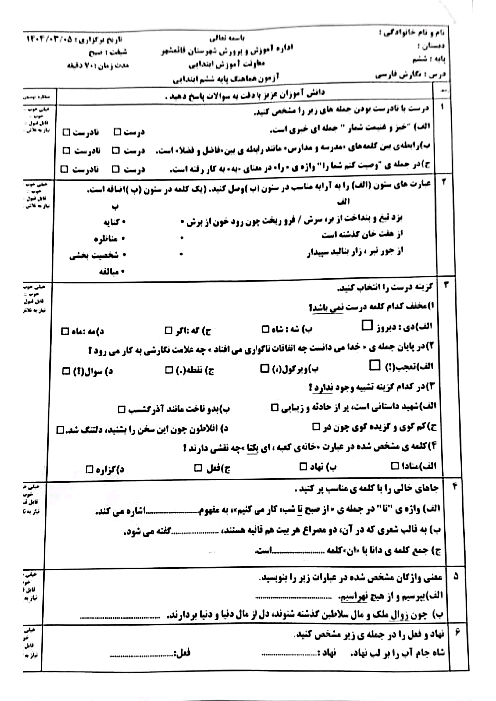 نام و نام خانوادگی :
دبستان :
پایه : ششم
درس : نگارش فارسی
باسمه تعالی
اداره آموزش و پرورش شهرستان قائمشهر
معاونت آموزش ابتدایی
آزمون هماهنگ پایه ششم ابتدایی
تاریخ برگزاری : ۱۴۰۴/۰۳/۰۵
شیفت : صبح
مدت زمان : ۷۰ دقیقه
دانش آموزان عزیز با دقت به سوالات پاسخ دهید .
۱ درست یا نادرست بودن جمله های زیر را مشخص کنید.
الف) "خیز و غنیمت شمار " جمله ای خبری است. درست نادرست
ب)رابطه‌ی بین کلمه‌های «مدرسه و مدارس» مانند رابطه ی بین«فاضل و فضلا» است. درست نادرست
ج)در جمله ی «وصیت کنم شما را» واژه ی « را» در معنای «به» به کار رفته است. درست نادرست
۲ عبارت های ستون (الف) را به آرایه مناسب در ستون (ب )وصل کنید. (یک کلمه در ستون (ب )اضافه است.
الف ب
بزد تیغ و بنداخت از بر، سرش / فرو ریخت چون رود خون از برش • • کنایه
از هفت خان گذشته است • • مناظره
از جور تبر ، زار بنالید سپیدار • • شخصیت بخشی
• مبالغه
۳ گزینه درست را انتخاب کنید.
۱)مخفف کدام کلمه درست نمی باشد؟
الف)دی : دیروز ب) شه : شاه ج) گه :اگر د)مه :ماه
۲)در پایان جمله ی « خدا می دانست چه اتفاقات ناگواری می افتاد » چه علامت نگارشی به کار می رود ؟
الف)تعجب(!) ب)ویرگول(،) ج) نقطه(.) د) سوال(؟)
۳)در کدام گزینه تشبیه وجود ندارد ؟
الف)شهید داستانی است، پر از حادثه و زیبایی ب)بدو تاخت مانند آذرگشسب
ج)کم گوی و گزیده گوی چون در د) افلاطون چون این سخن را بشنید، دلتنگ شد.
۴)کلمه ی مشخص شده در عبارت «خانه‌ی کعبه ، ای یکتا » چه نقشی دارند ؟
الف)منادا ب) نهاد ج)فعل د)گزاره
۴ جاهای خالی را با کلمه ی مناسب پر کنید .
الف) واژه ی "تا" در جمله ی « از صبح تا شب، کار می کنیم»، به مفهوم....................اشاره می کند.
ب) به قالب شعری که در آن، دو مصراع هر بیت هم قافیه هستند، ................گفته می شود.
ج) جمع کلمه ی دانا با «ان»کلمه ....................است.
۵ معنی واژگان مشخص شده در عبارات زیر را بنویسید.
الف)بپرسیم و از هیچ نهراسیم. ............................
ب) چون زوال ملک و مال سلاطین گذشته شنوند، دل از مال دنیا و دنیا بردارند. ............................
۶ نهاد و فعل را در جمله ی زیر مشخص کنید.
شاه جام آب را بر لب نهاد. نهاد :.................... فعل:....................